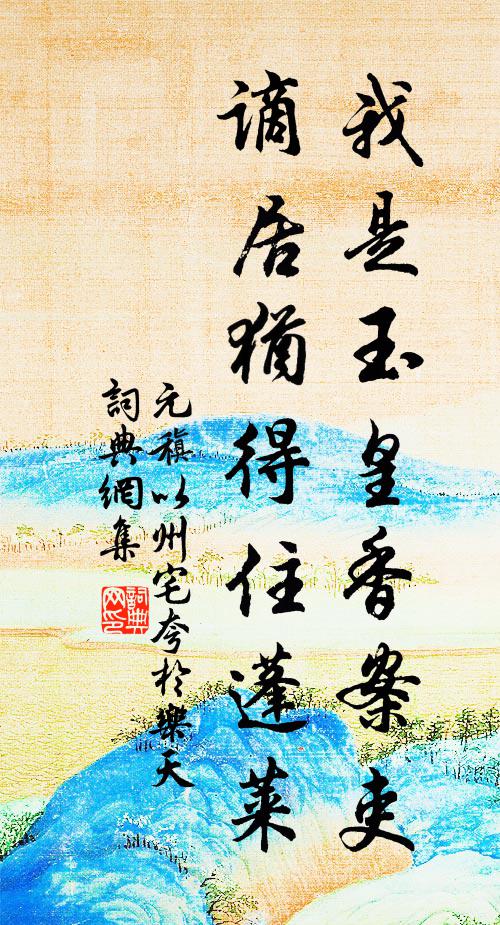 我是玉皇香案吏
謫居猶得住蓬萊
元稹以州宅夸於樂天
詞典網集
詞典網印